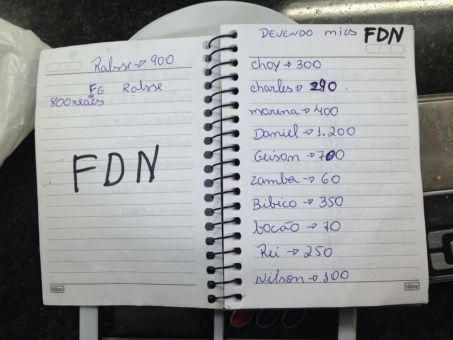 Rabsse → 900
FG Rabsse
800 reais
FDN
DEVENDO mics FDN
choy → 300
charles → 290
marina → 400
Daniel → 1.200
Geison → 700
zamba → 60
Bibico → 350
bocão → 70
Rei → 250
Nilson → 100